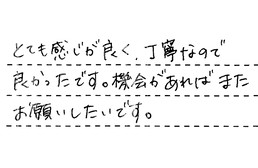 とても感じが良く、丁寧なので
良かったです。機会があればまた
お願いしたいです。